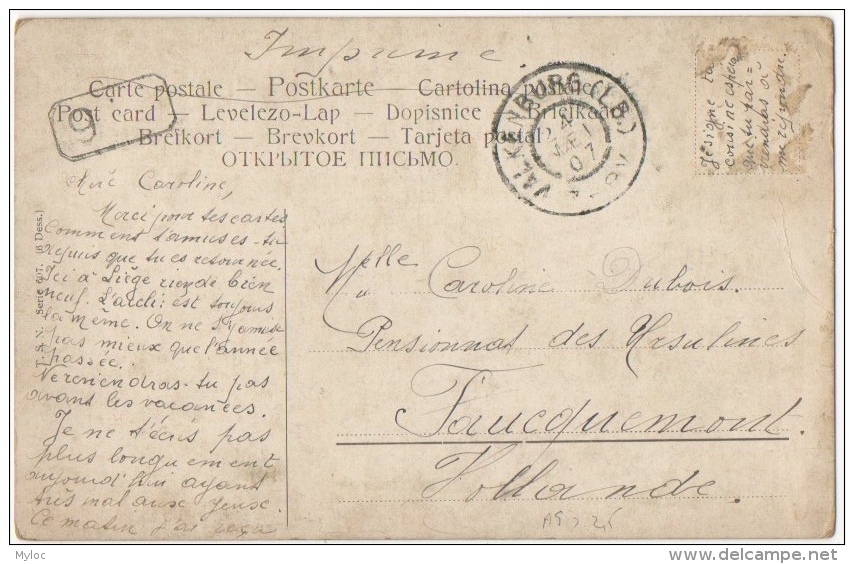 Imprimé.
Carte postale — Postkarte — Cartolina postale
Post card — Levelezo-Lap — Dopisnice — Briefkaart
Brefkort — Brevkort — Tarjeta postal
ОТКРЫТОЕ ПИСЬМО.
6
VALKENBURG (LB.)
4
07
Jésigne ta
cousine espère
que tu
viendras
Caroline,
Merci pour tes cartes
Comment t'amuses-tu
depuis que tu es retournée.
Ici à Liège rien de bien
neuf. L'arch: est toujours
la même. On ne s'amuse
pas mieux que l'année
passée.
Ne reviendras-tu pas
avant les vacances.
Je ne t'écris pas
plus longuement
aujourd'hui ayant
très mal aux yeux.
Ce matin j'ai reçu
T. S. N. Serie 607. (6 Dess.)
Melle Caroline Dubois.
Pensionnat des Ursulines
Faucquemont.
Hollande.
Myloc
www.delcampe.net